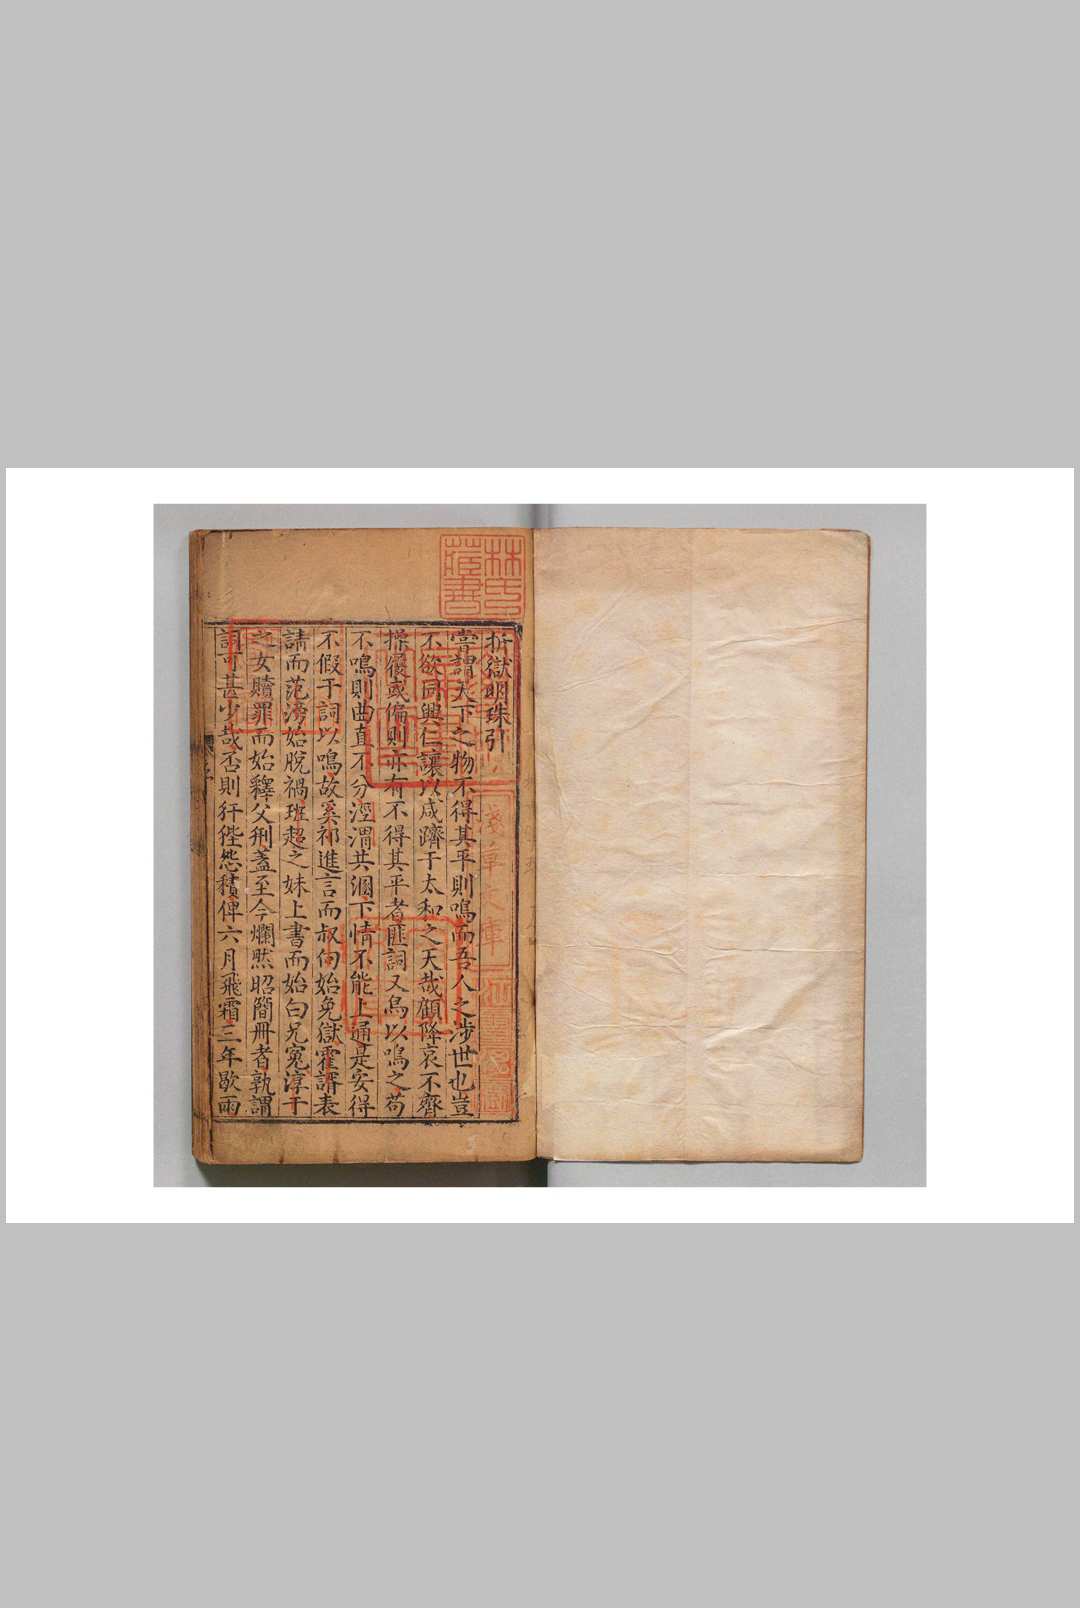 折獄明珠引
嘗謂天下之物不得其平則鳴而吾人之涉世也豈
不欲同興仁讓以咸躋于太和之天哉顧降衷不齊
操履或偏則亦有不得其平者匪詞又烏以鳴之苟
不鳴則曲直不分涇渭共溷下情不能上通是安得
不假于詞以鳴故奚祁進言而叔向始免獄霍諝表
請而范滂始脫禍班超之妹上書而始白兄冤淳于
之女贖罪而始釋父刑蓋至今爛然昭簡冊者孰謂
詞可甚少哉否則犴狴怨積俾六月飛霜三年歇雨
林氏
藏書
淺草文庫